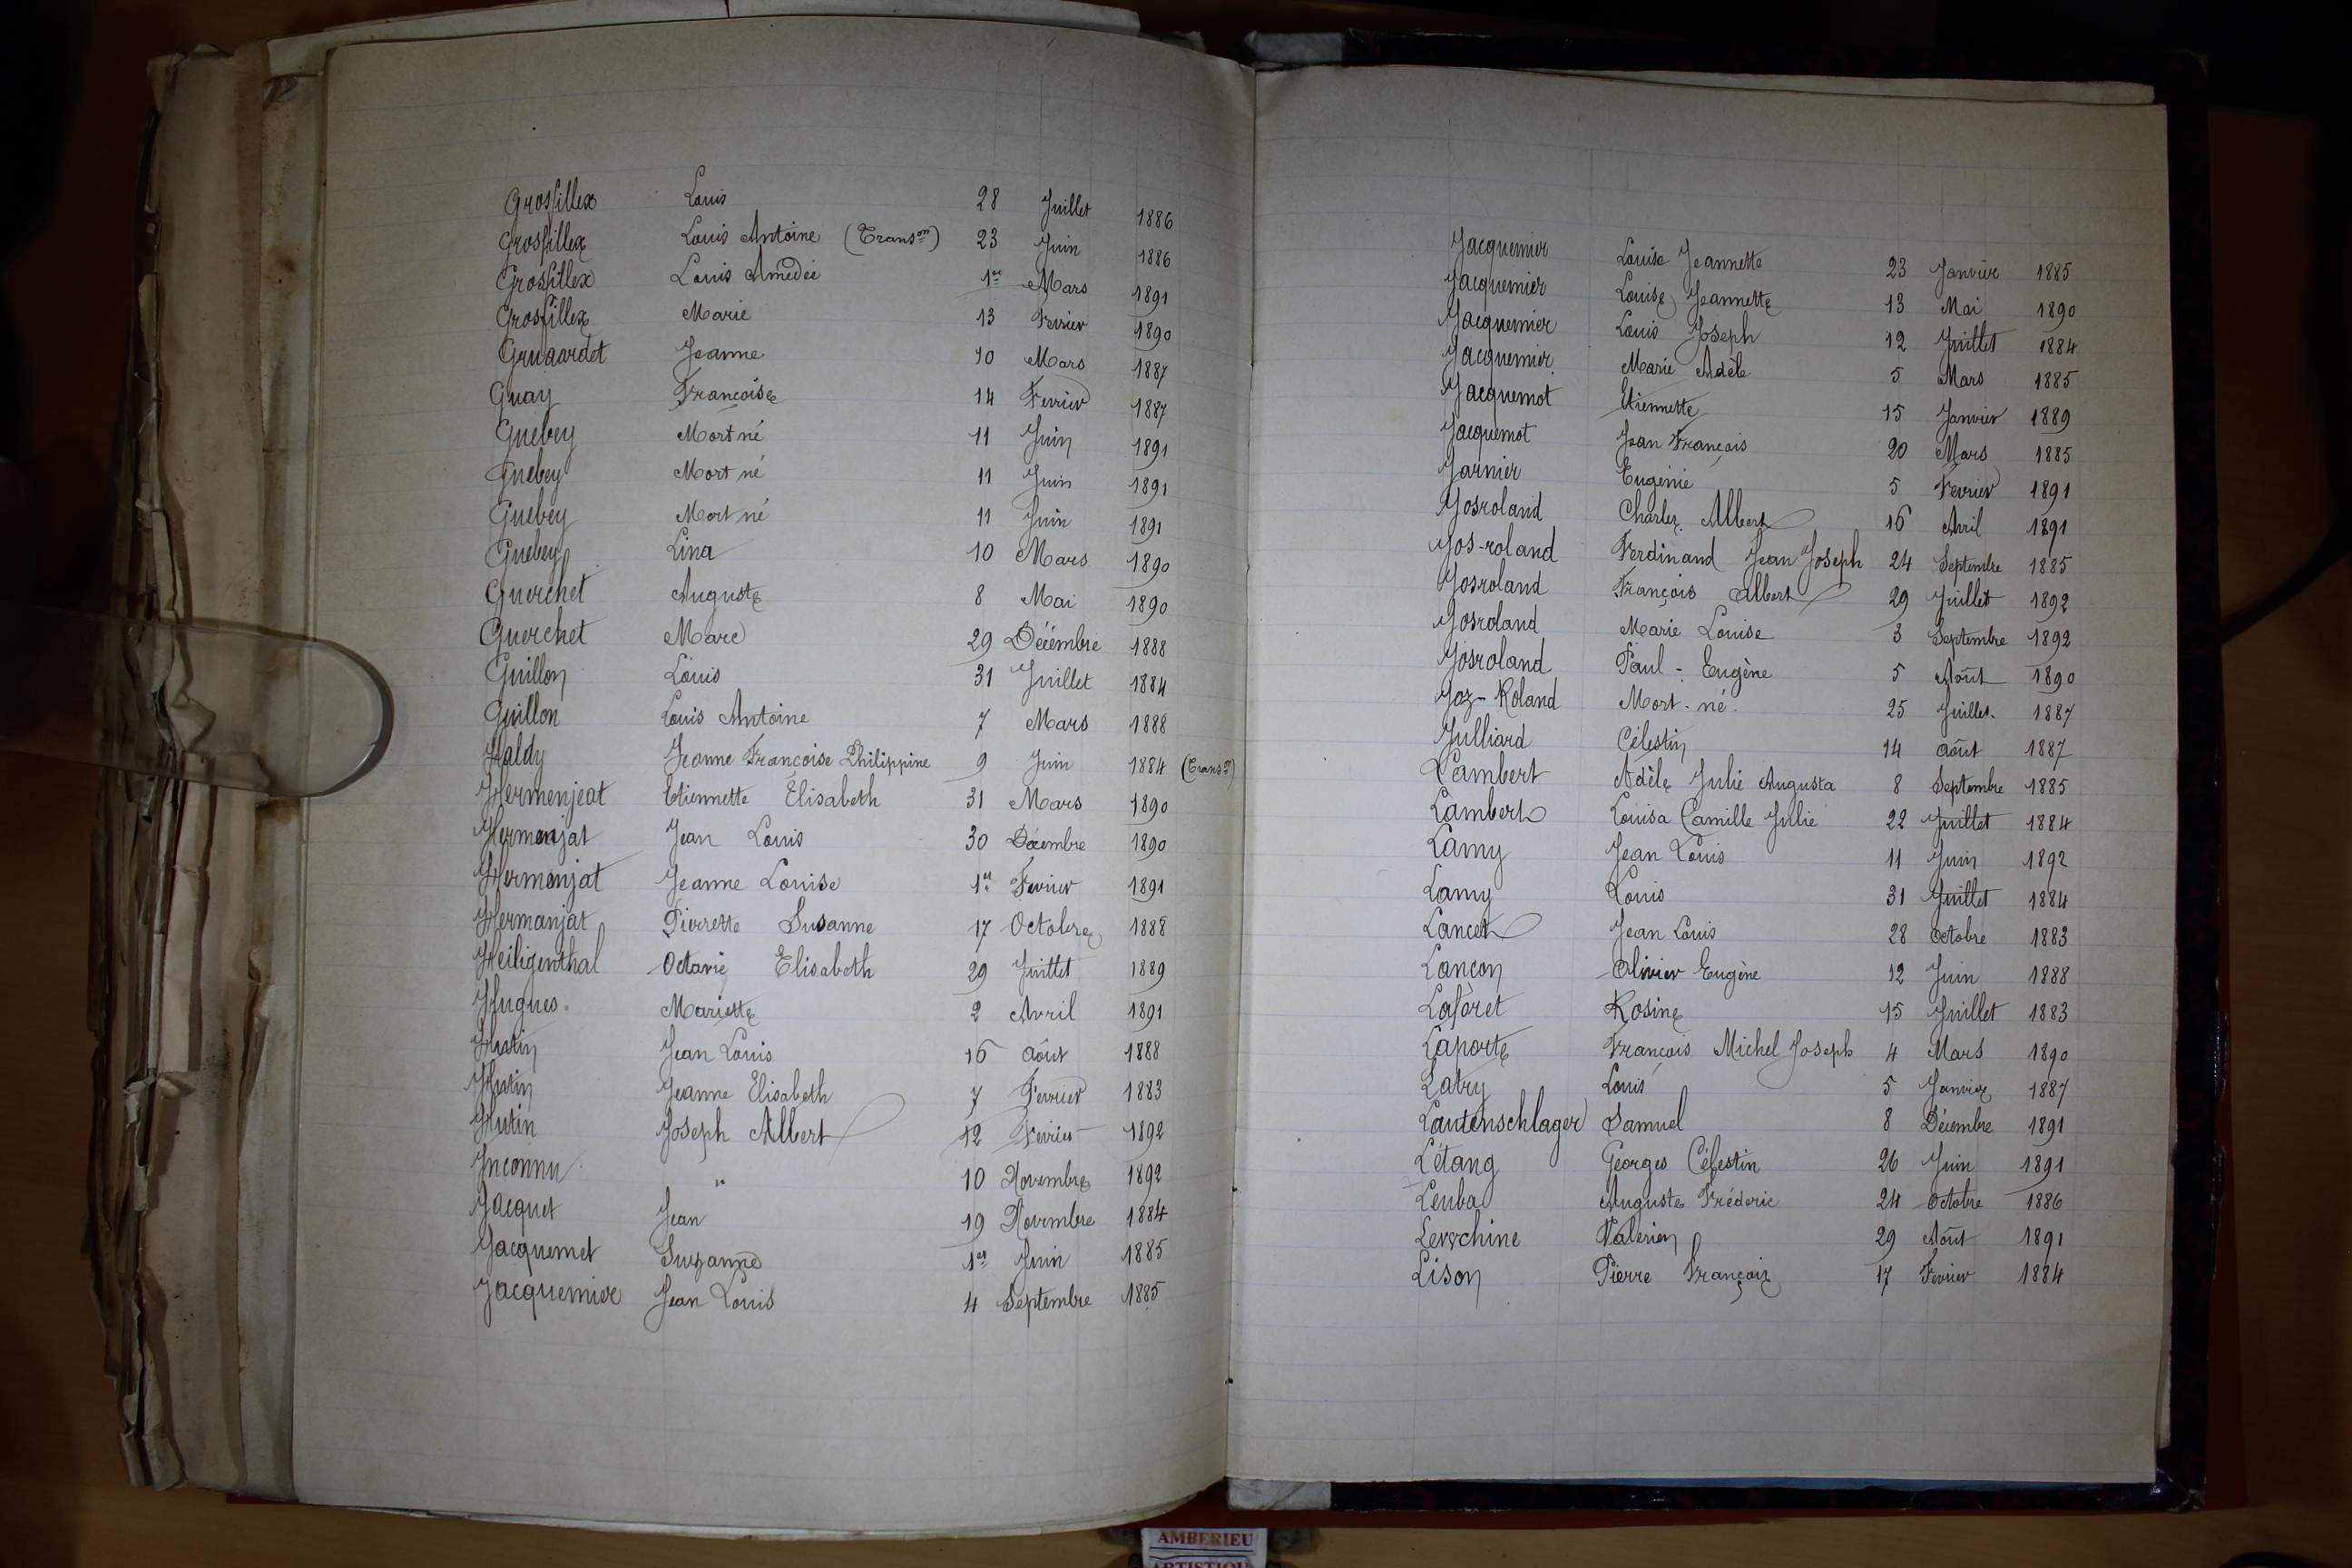 Grosfillex Louis 28 Juillet 1886
Grosfillex Louis Antoine (Transon) 23 Juin 1886
Grosfillex Louis Amédée 1er Mars 1891
Grosfillex Marie 13 Fevrier 1890
Gruaardet Jeanne 10 Mars 1887
Guay Françoise 14 Fevrier 1887
Guebey Mort né 11 Juin 1891
Guebey Mort né 11 Juin 1891
Guebey Mort né 11 Juin 1891
Guebey Lina 10 Mars 1890
Guerchet Auguste 8 Mai 1890
Guerchet Marc 29 Décembre 1888
Guillon Louis 31 Juillet 1884
Guillon Louis Antoine 7 Mars 1888
Haldy Jeanne Françoise Philippine 9 Juin 1884 (Transon)
Hermenjeat Etiennette Elisabeth 31 Mars 1890
Hermenjat Jean Louis 30 Décembre 1890
Hermenjat Jeanne Louise 1er Fevrier 1891
Hermanjat Pierrette Susanne 17 Octobre 1888
Heiligenthal Octavie Elisabeth 29 Juillet 1889
Hugues Mariette 2 Avril 1891
Hutin Jean Louis 16 Août 1888
Hutin Jeanne Elisabeth 7 Fevrier 1883
Hutin Joseph Albert 12 Fevrier 1892
Inconnu " 10 Novembre 1892
Jacquet Jean 19 Novembre 1884
Jacquemet Suzanne 1er Juin 1885
Jacquemier Jean Louis 4 Septembre 1885
Jacquemier Louise Jeannette 23 Janvier 1885
Jacquemier Louise Jeannette 13 Mai 1890
Jacquemier Louis Joseph 12 Juillet 1884
Jacquemier Marie Adèle 5 Mars 1885
Jacquemot Etiennette 15 Janvier 1889
Jacquemot Jean François 20 Mars 1885
Jarnier Eugénie 5 Fevrier 1891
Josroland Charles Albert 16 Avril 1891
Jos-roland Ferdinand Jean Joseph 24 Septembre 1885
Josroland François Albert 29 Juillet 1892
Josroland Marie Louise 3 Septembre 1892
Josroland Paul-Eugène 5 Août 1890
Joz-Roland Mort-né. 25 Juillet. 1887
Julliard Célestin 14 août 1887
Lambert Adèle Julie Augusta 8 Septembre 1885
Lambert Louisa Camille Julie 22 Juillet 1884
Lamy Jean Louis 11 Juin 1892
Lamy Louis 31 Juillet 1884
Lancet Jean Louis 28 Octobre 1883
Lançon Olivier Eugène 12 Juin 1888
Laforet Rosine 15 Juillet 1883
Laporte François Michel Joseph 4 Mars 1890
Latry Louis 5 Janvier 1887
Lautenschlager Samuel 8 Décembre 1891
Létang Georges Célestin 26 Juin 1891
Leuba Auguste Fréderic 24 Octobre 1886
Levschine Valérien 29 Août 1891
Lison Pierre François 17 Fevrier 1884
AMBERIEU